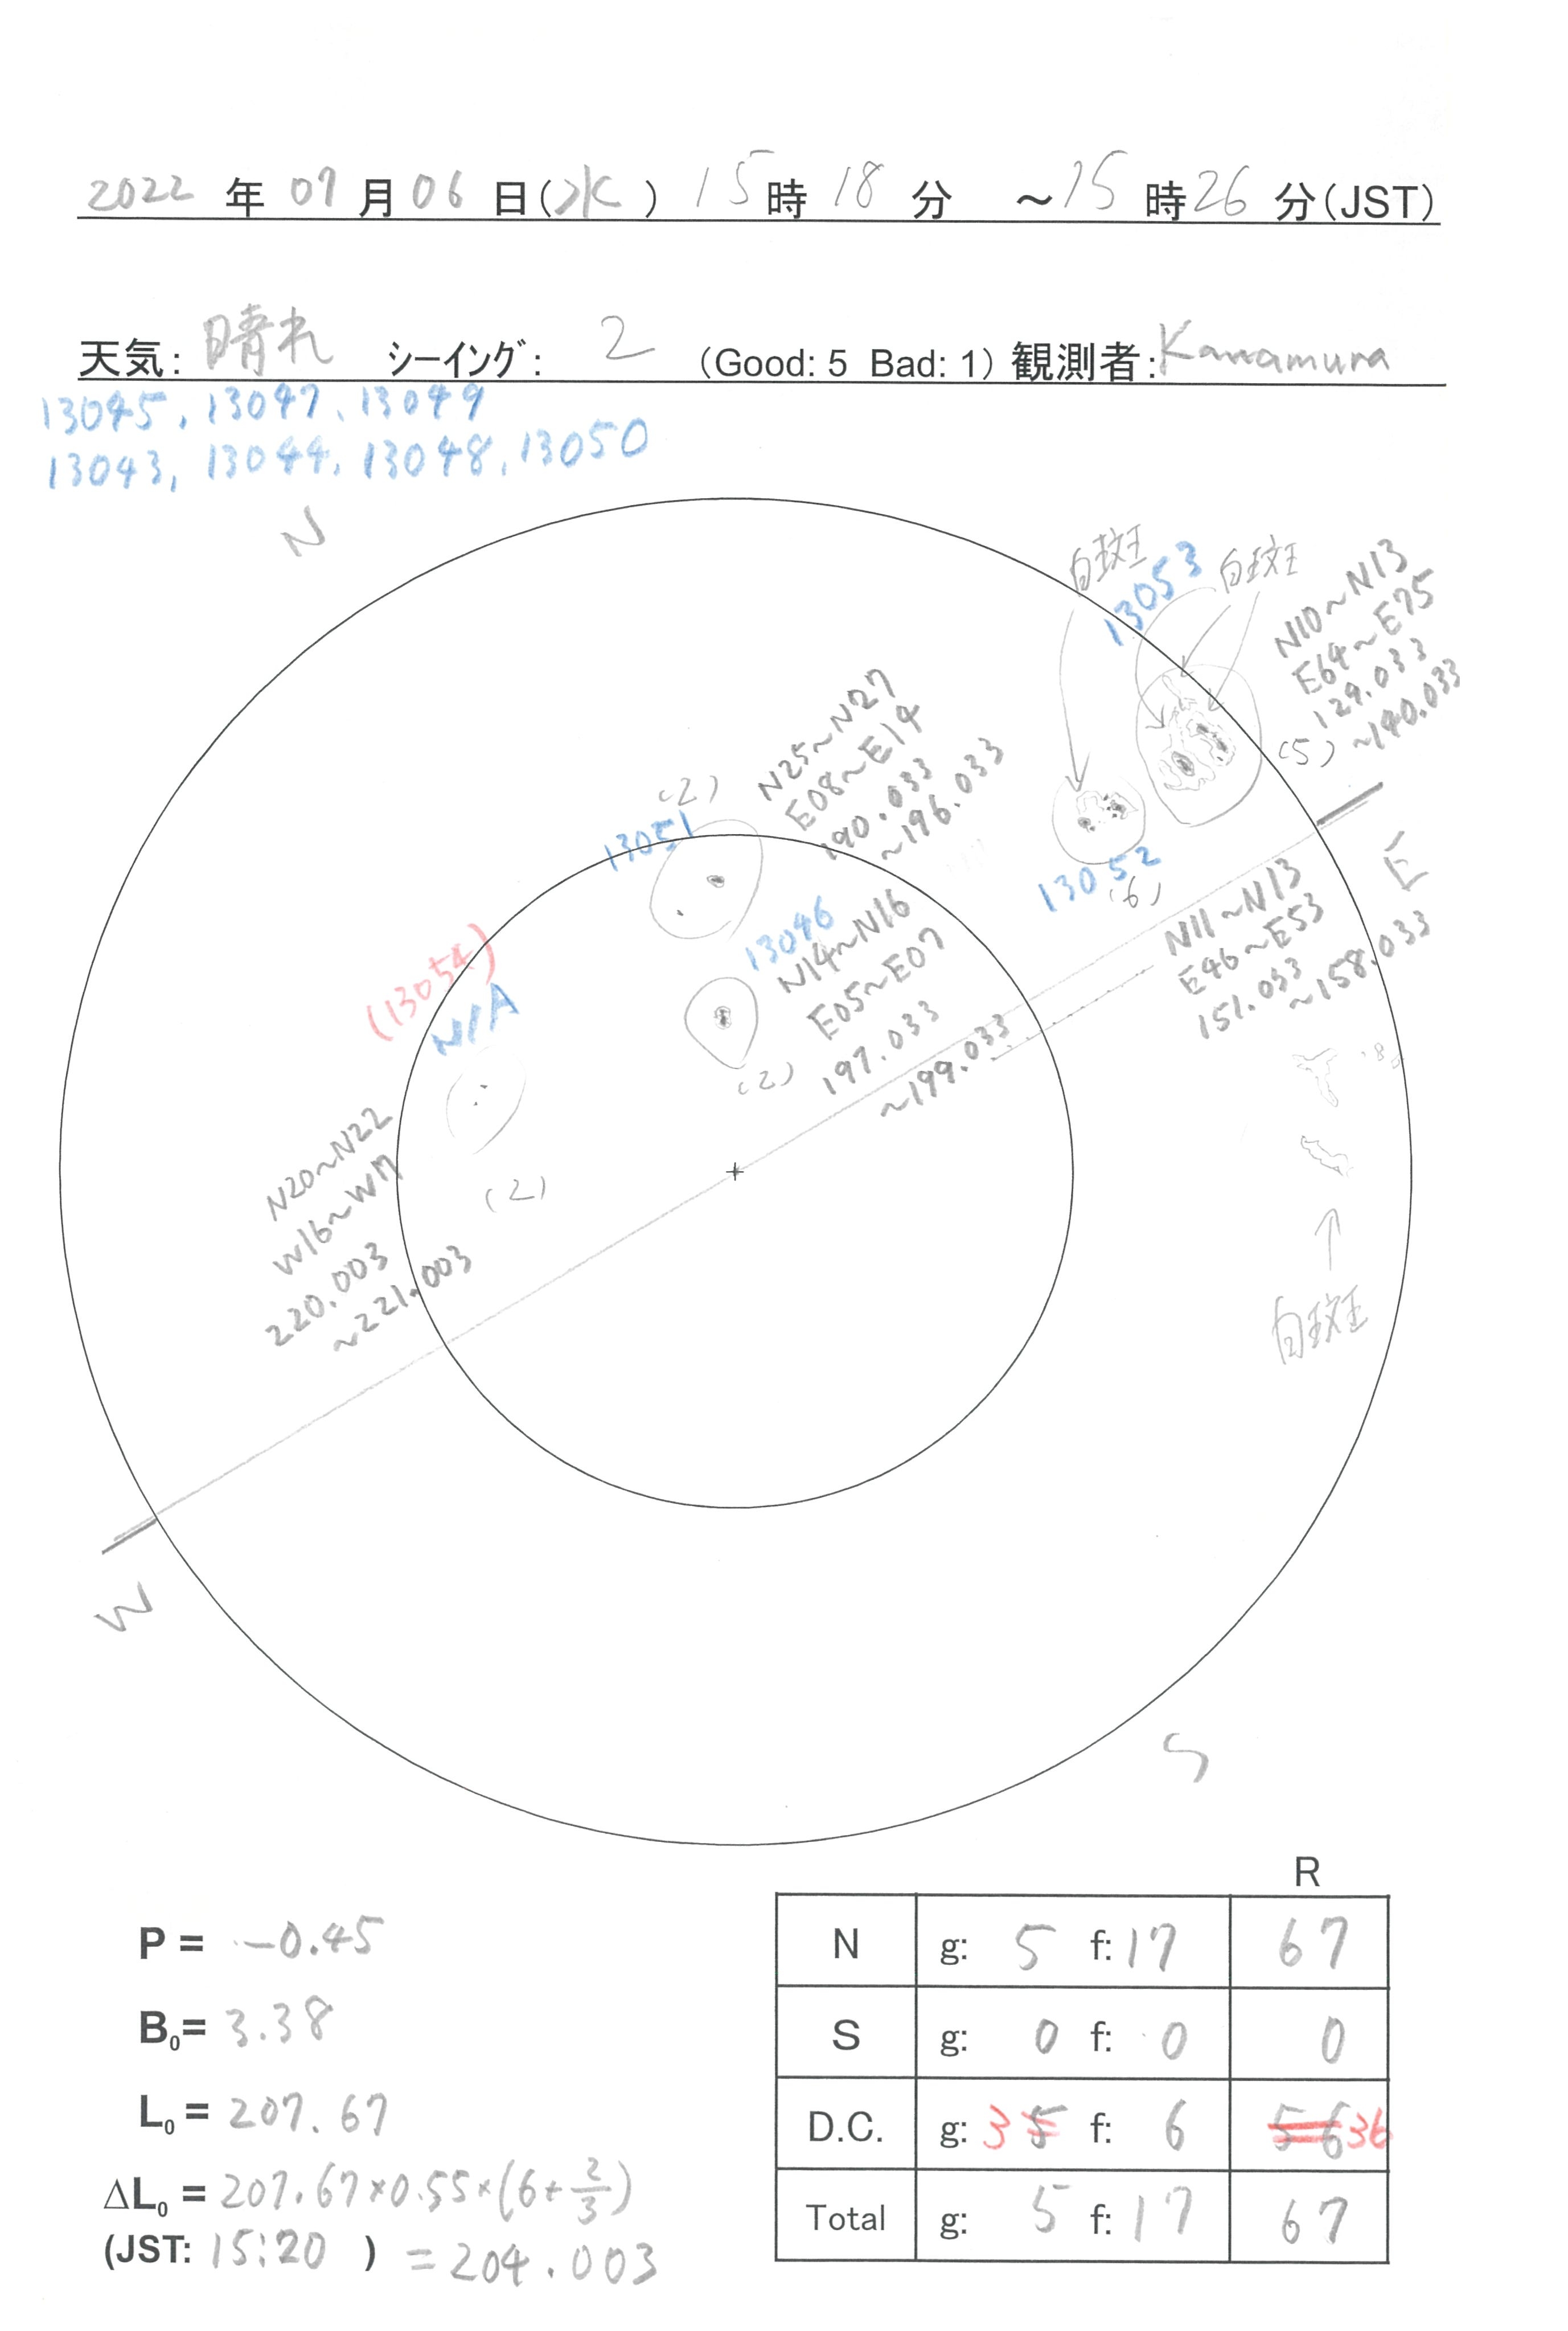 2022 年 07 月 06 日(水) 15時 18 分 ~15 時26 分(JST)
天気: 晴れ シーイング: 2 (Good: 5 Bad: 1) 観測者:Kawamura
13045, 13047, 13049
13043, 13044, 13048, 13050
N
白斑
13053
白斑
N10~N13
E64~E75
129.033
~140.033
(5)
N25~N27
E08~E14
190.033
~196.033
(2)
13051
13052
(6)
E
13046
N14~N16
E05~E07
197.033
~199.033
(2)
N11~N13
E46~E53
151.033
~158.033
(13054)
N/A
N20~N22
W16~W17
220.003
~221.003
(2)
白斑
W
S
R
P = -0.45
B₀= 3.38
L₀ = 207.67
ΔL₀ = 207.67×0.55×(6+2/3)
(JST: 15:20 ) = 204.003
N g: 5 f: 17 67
S g: 0 f: 0 0
D.C. g: 3 5 f: 6 56 36
Total g: 5 f: 17 67